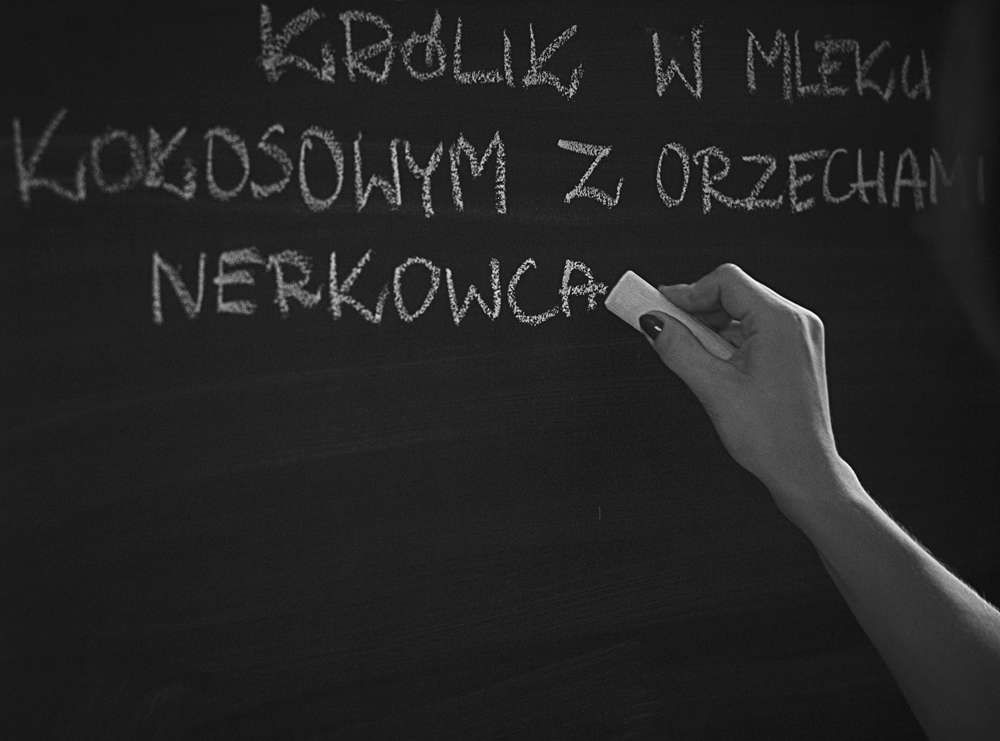 KRÓLIK W MLEKU
KOKOSOWYM Z ORZECHAMI
NERKOWCA